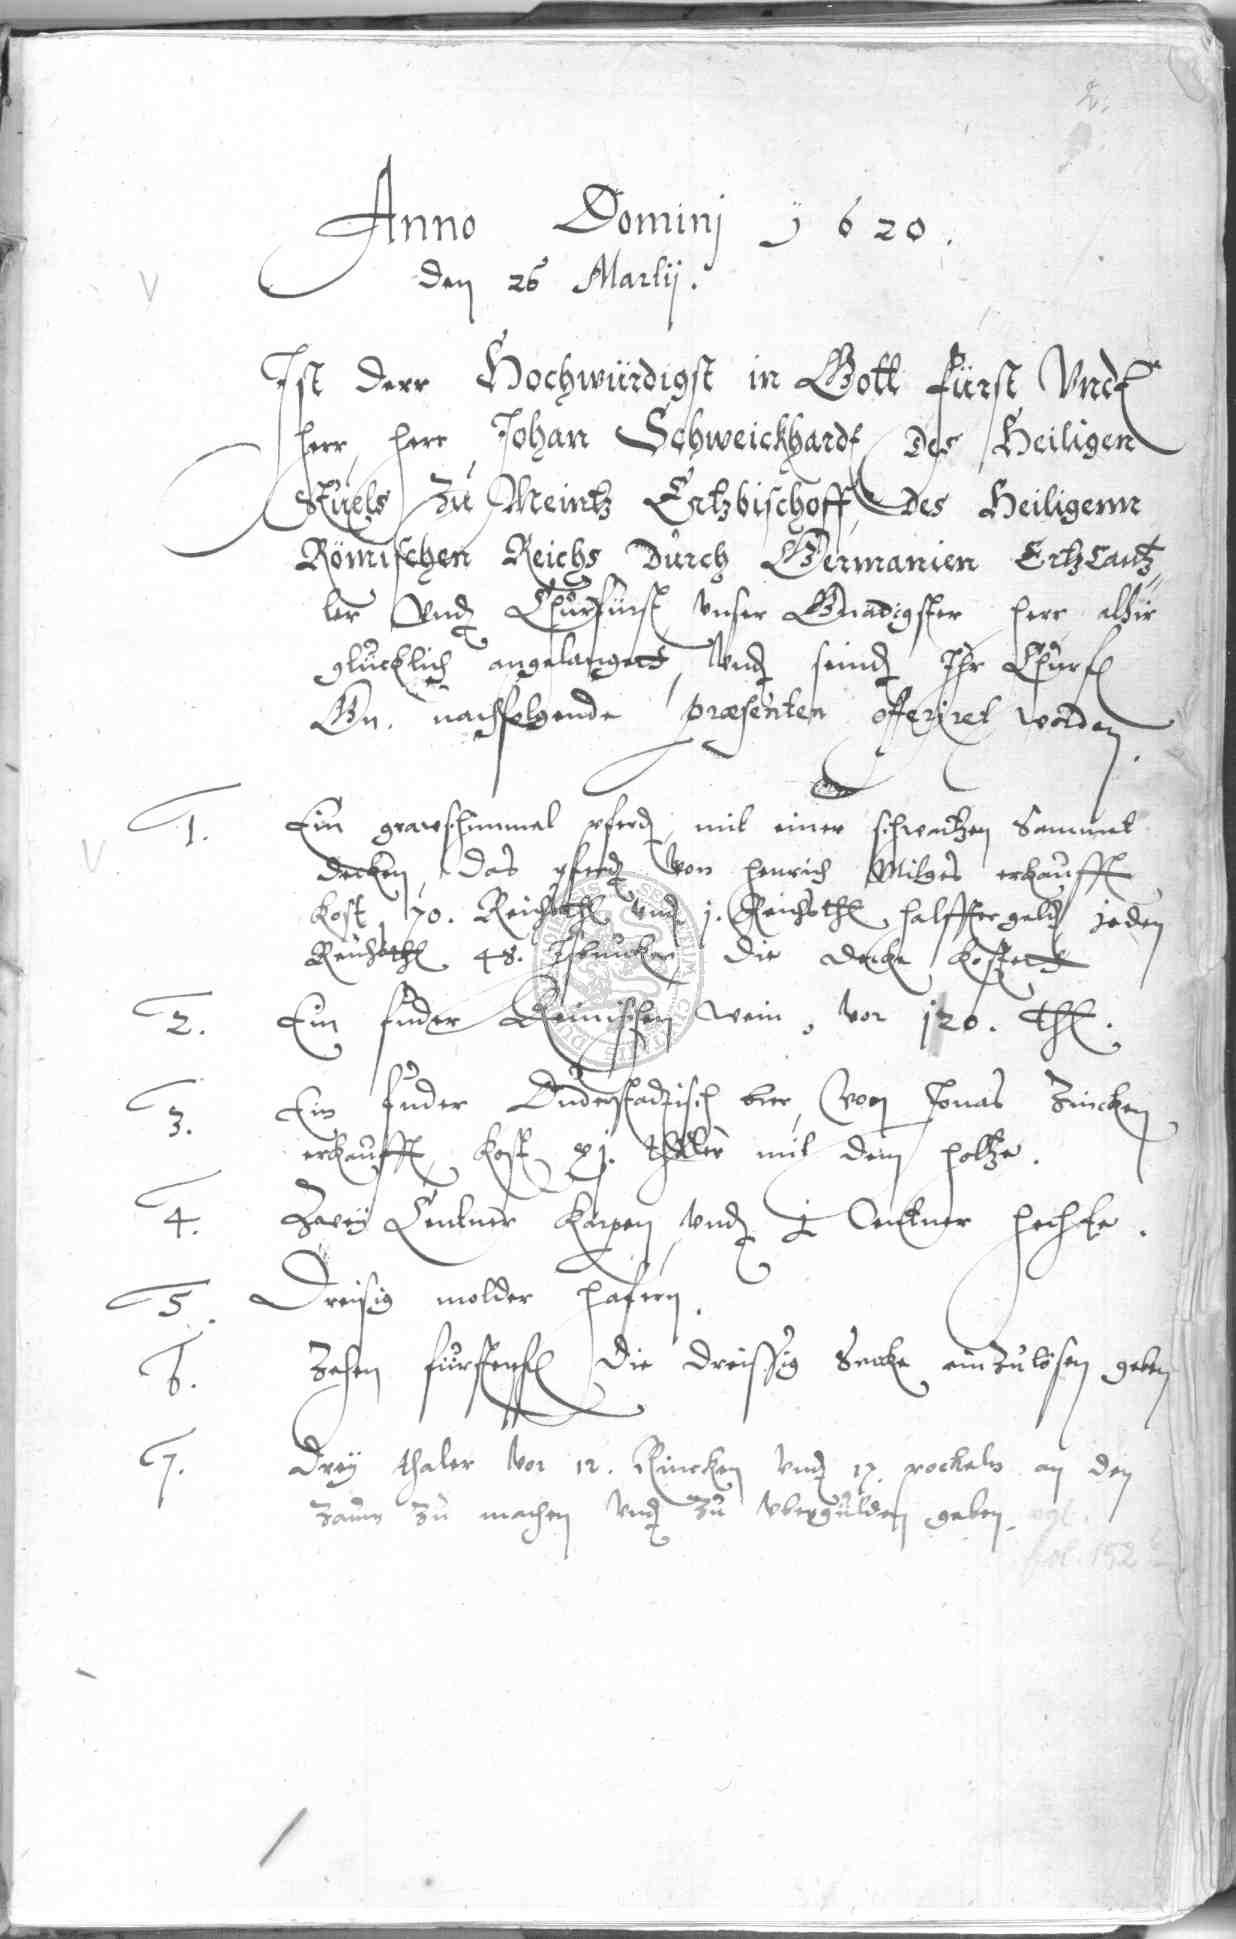 2.
Anno Dominj 1620.
den 26 Martij.
Ist derr Hochwürdigst in Gott fürst Vnd
herr, herr Johan Schweickhard des Heiligen
Stuels zu Meintz Ertzbischoff, des Heiligenn
Römischen Reichs durch Germanien Ertzcantz
ler vnd Churfürst vnser Gnädigster herr alhir
glücklich angelangett, vnd seind Ihr Churf
Gn. nachfolgende præsenten offeriret worden.
1. Ein grawschimmel pferd, mit einer schwartzen Sammet
decken, das pferd von Henrich Milges erkaufft
kost 70. Reichsthl vnd 1. Reichsthl halfftergeld jeden
Reichsthl 48. die decke kostett
2. Ein fuder Reinischen wein, vor 120. thl.
3. Ein fuder Duderstadisch bier, von Jonas Zincken
erkaufft, kost xj. thaler mit dem holtze.
4. Zwey Centner Karpen vnd 1 Centner hechte.
5. Dreisig molder hafern.
6. Zehen fürstenfl die dreissig Secke einzulösen geben
7. Drey thaler vor 12. Rincken vnd 17. rockeln an den
zaum zu machen vnd zu vbergülden geben. vgl.
fol. 152